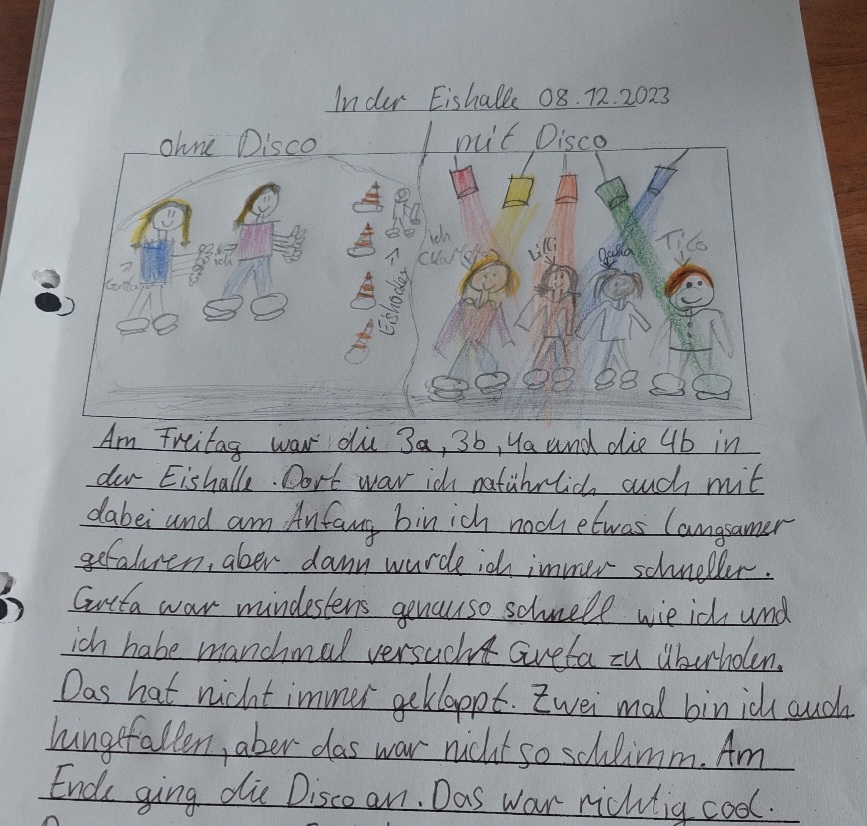 In der Eishalle 08.12.2023
ohne Disco
mit Disco
Greta
ich
Eishockey
ich
Lilli
Tico
Am Freitag war die 3a, 3b, 4a und die 4b in
der Eishalle. Dort war ich natührlich auch mit
dabei und am Anfang bin ich noch etwas langsamer
gefahren, aber dann wurde ich immer schneller.
Greta war mindestens genauso schnell wie ich und
ich habe manchmal versucht Greta zu überholen.
Das hat nicht immer geklappt. Zwei mal bin ich auch
hingefallen, aber das war nicht so schlimm. Am
Ende ging die Disco an. Das war richtig cool.